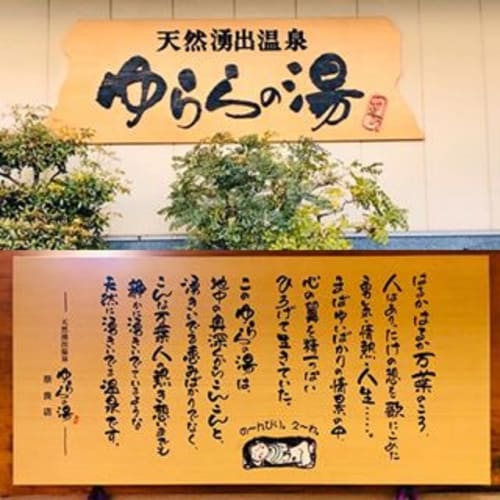 天然湧出温泉
ゆららの湯
はるかはるか万葉のころ、
人はありたけの想を歌にこめた
勇気、情熱、人生……。
まばゆいばかりの情景の中、
心の翼を精一っぱい
ひろげて生きていた。
このゆららの湯は、
地中の奥深くからこんこんと、
湧きいでる恵みばかりでなく、
こんな万葉人の熱き想いまでも
静かに湧きいでているような
天然に湧きいでる温泉です。
の〜んびり。ス〜ね。
天然湧出温泉
ゆららの湯
奈良店